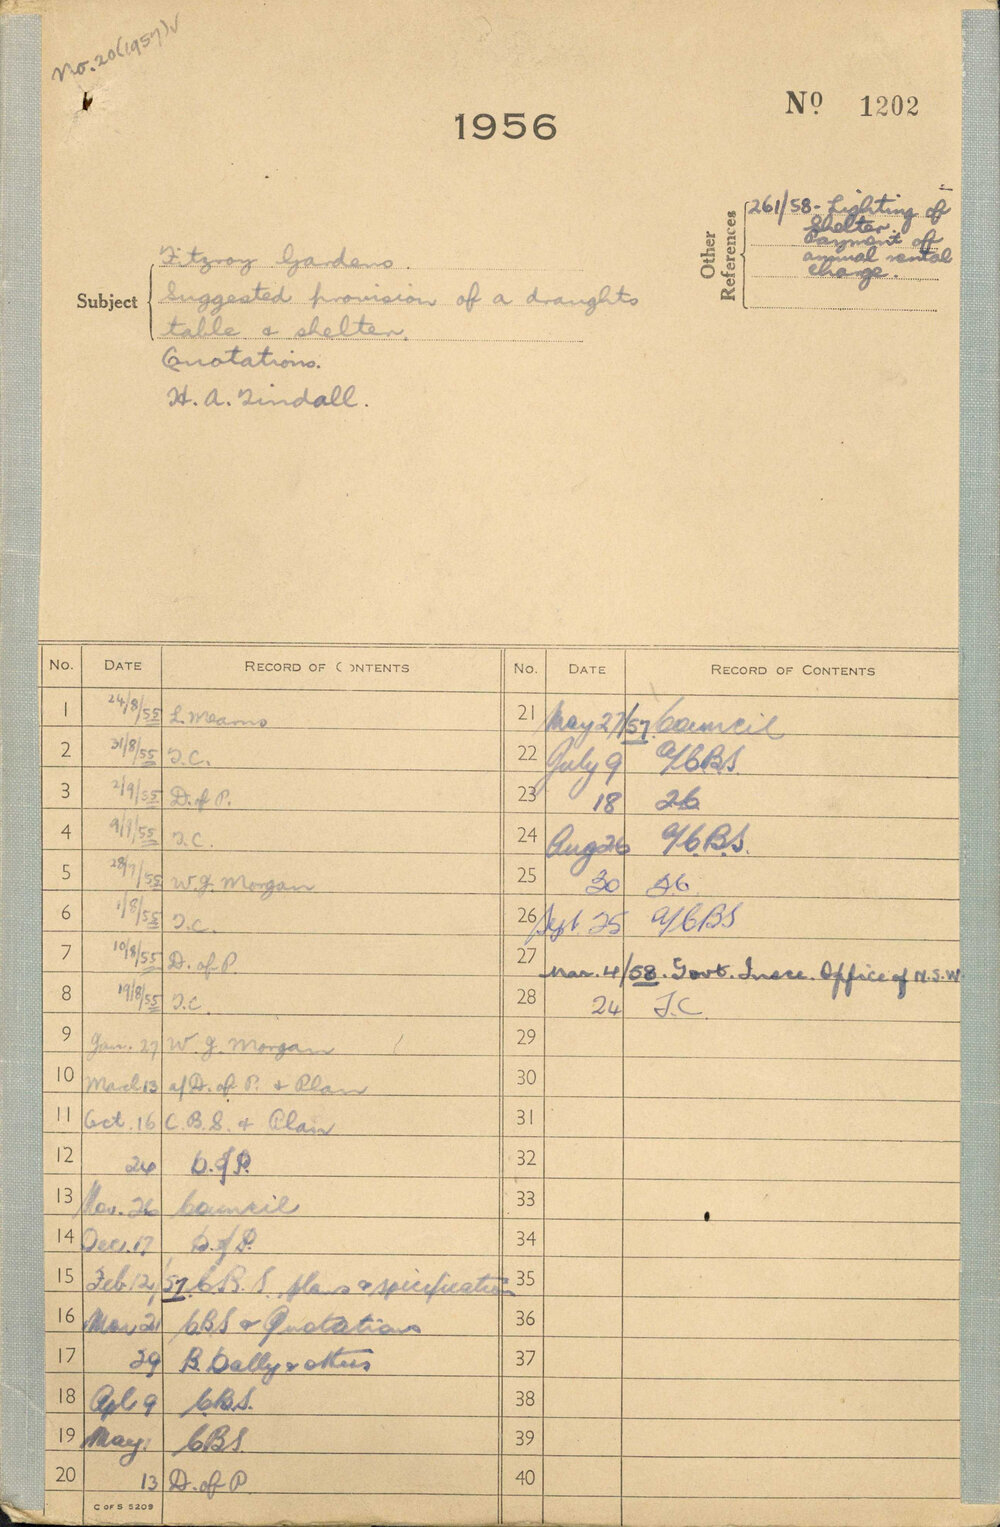 No. 20 (1957) ✓
No 1202
1956
Other References
261/58 - Lighting of
Shelter.
Payment of
annual rental
charge.
Subject
Fitzroy Gardens.
Suggested provision of a draughts
table & shelter.
Quotations.
H. A. Tindall.
No. DATE RECORD OF CONTENTS
1 24/8/55 L Mearns
2 31/8/55 T.C.
3 2/9/55 D. of P.
4 9/9/55 T.C.
5 28/7/55 W. G. Morgan
6 1/8/55 T.C.
7 10/8/55 D. of P
8 19/8/55 T.C.
9 Jan. 27 W. G. Morgan
10 March 13 a/D. of P. & Plan
11 Oct. 16 C.B.S. & Plan
12 24 D. of P.
13 Nov. 26 Council
14 Dec. 17 D. of P.
15 Feb 12/57 C.B.S. plans & specification
16 Mar 21 CBS & Quotations
17 29 B. Dally & others
18 Apl 9 C.B.S.
19 May 1 CBS
20 13 D. of P
C OF S 5209
No. DATE RECORD OF CONTENTS
21 May 27/57 Council
22 July 9 a/CBS
23 18
24 Aug 26 a/C.B.S.
25 30
26 Sept 25 a/CBS
27 Mar. 4/58. Govt. Insce. Office of N.S.W.
28 24 T.C.
29
30
31
32
33
34
35
36
37
38
39
40